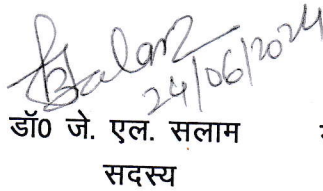 24/06/2024
डॉ0 जे. एल. सलाम
सदस्य